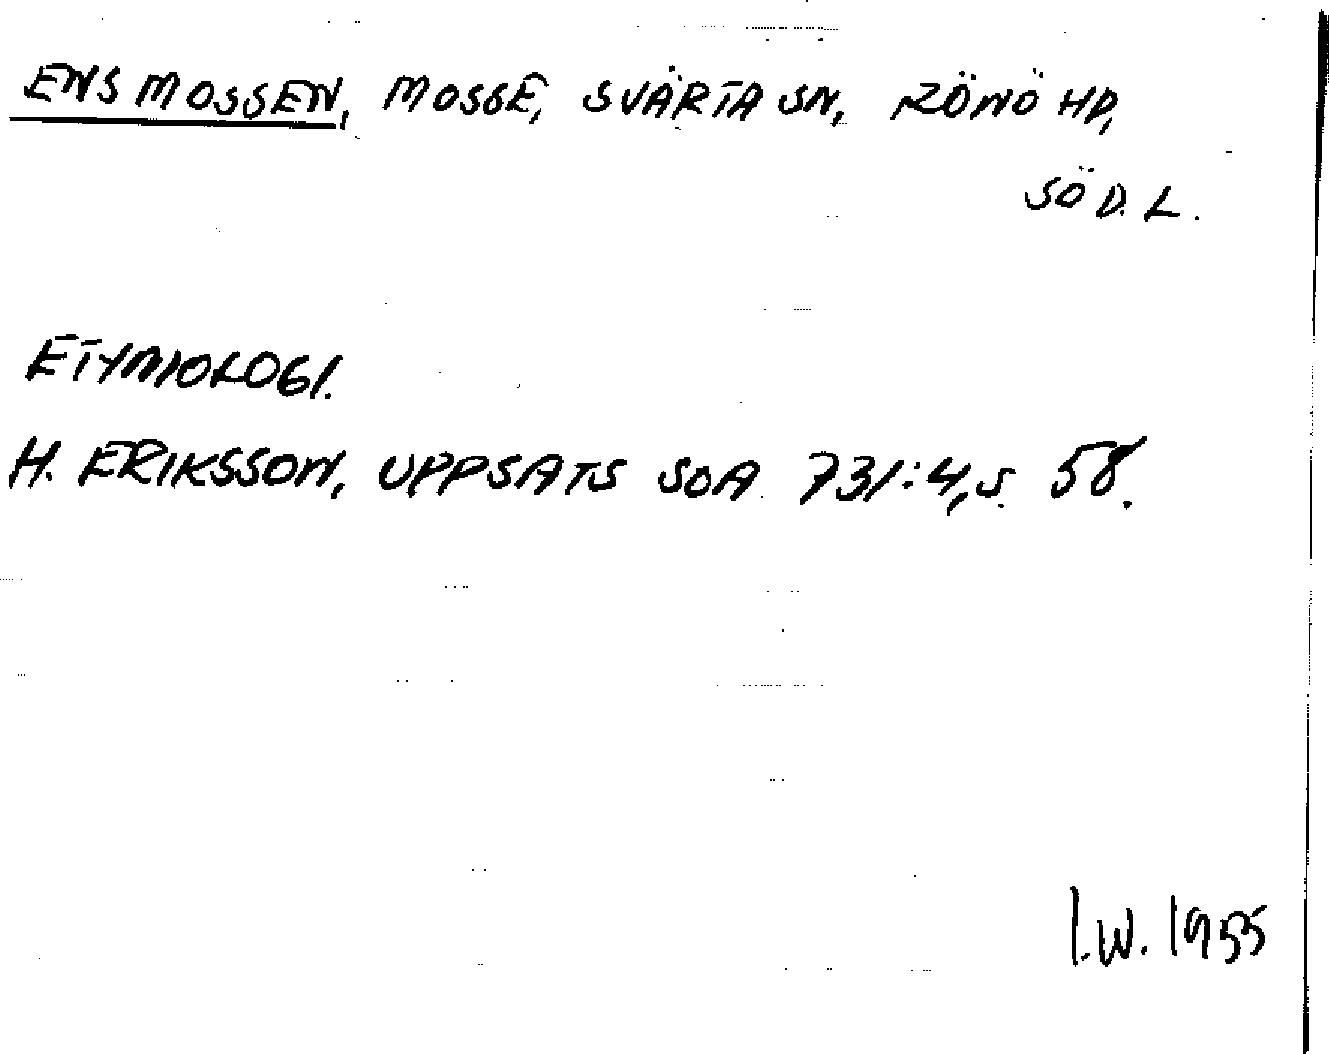 ENSMOSSEN, MOSSE, SVÄRTA SN, RÖNÖ HD,
SÖD. L.
ETYMOLOGI.
H. ERIKSSON, UPPSATS SOA 731:4, S. 58.
I.W. 1955